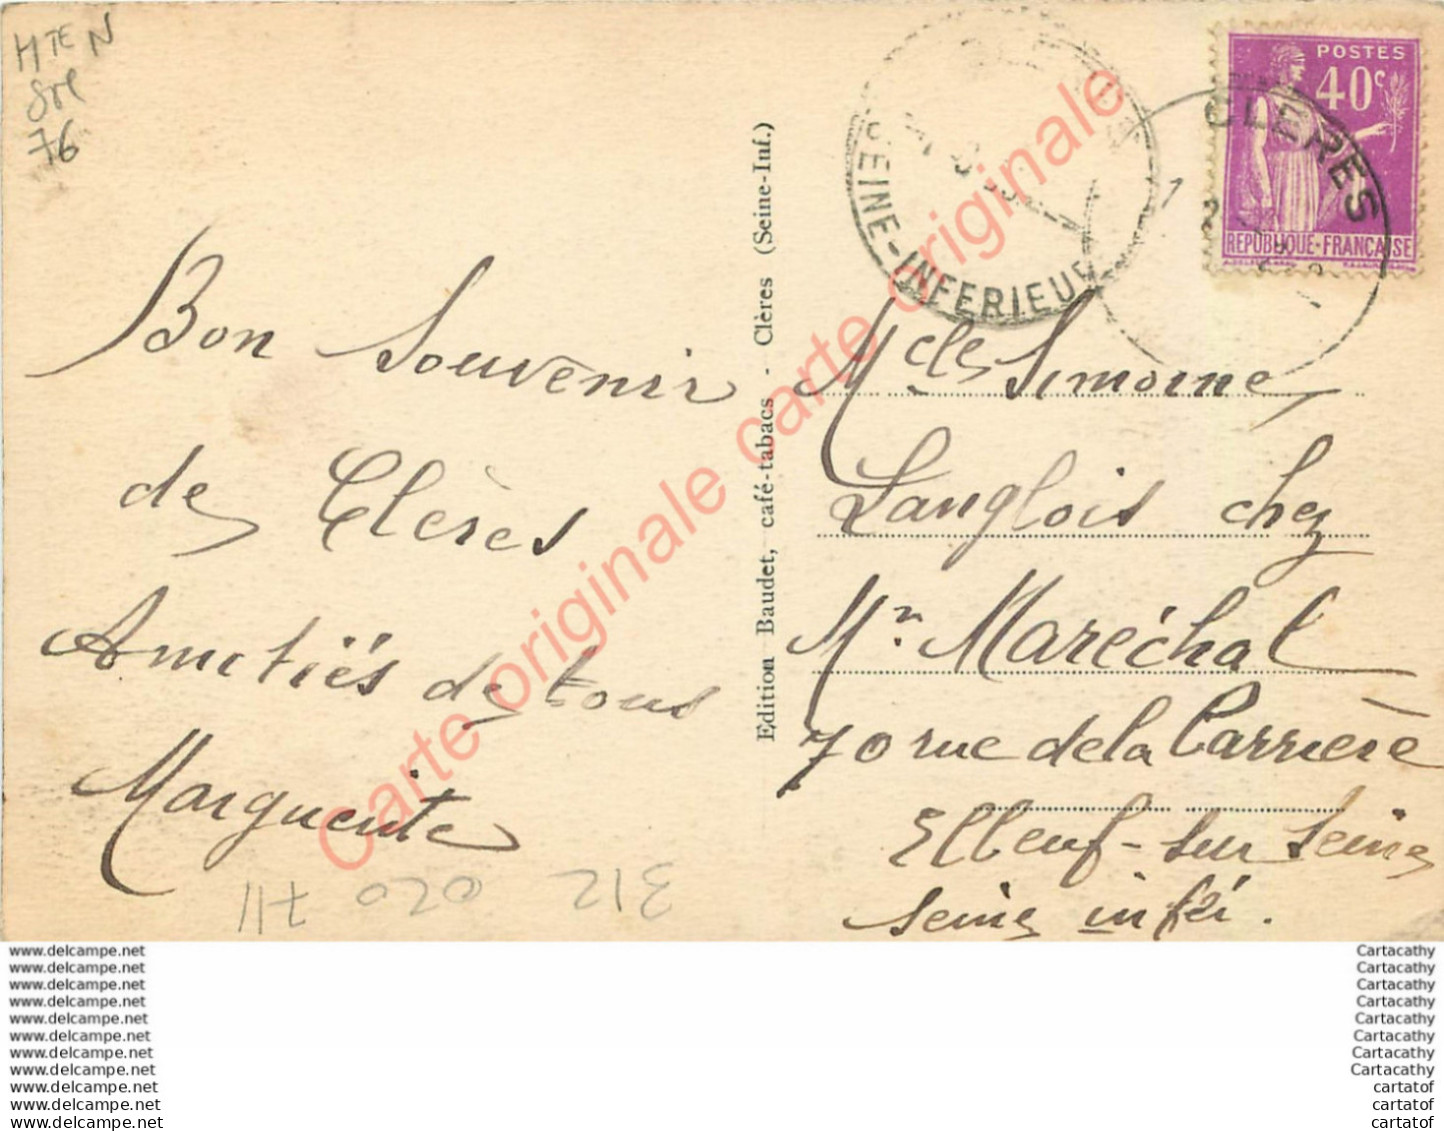 HTE N
76
Bon Souvenir
de Clères
Amitiés de tous
Marguerite
312 020 711
Edition Baudet, café-tabacs - Clères (Seine-Inf.)
SEINE-INFERIEURE
CLERES
POSTES
40c
REPUBLIQUE·FRANÇAISE
Melle Simone
Langlois chez
Mr Maréchal
70 rue de la Carrière
Elbeuf-sur Seine
Seine inféi.
Carte originale carte originale
www.delcampe.net
www.delcampe.net
www.delcampe.net
www.delcampe.net
www.delcampe.net
www.delcampe.net
www.delcampe.net
www.delcampe.net
www.delcampe.net
www.delcampe.net
www.delcampe.net
Cartacathy
Cartacathy
Cartacathy
Cartacathy
Cartacathy
Cartacathy
Cartacathy
Cartacathy
cartatof
cartatof
cartatof